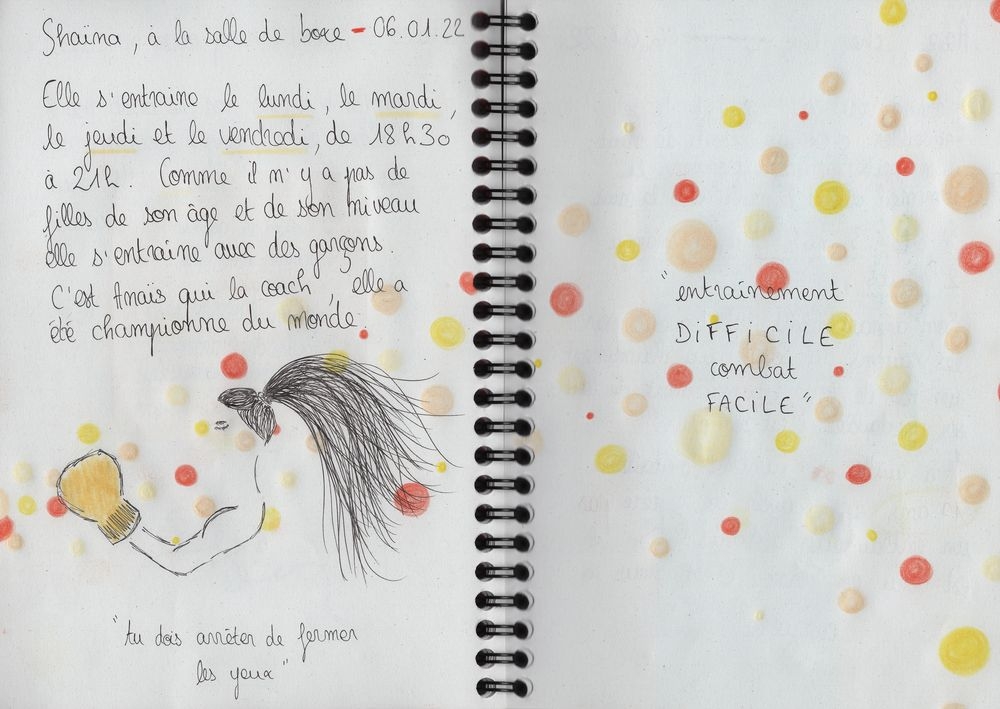 Shaina, à la salle de boxe - 06.01.22
Elle s'entraine le lundi, le mardi,
le jeudi et le vendredi, de 18h30
à 21h. Comme il n'y a pas de
filles de son âge et de son niveau
elle s'entraine avec des garçons.
C'est Anais qui la coach, elle a
été championne du monde.
"tu dois arrêter de fermer
les yeux"
"entraînement
DiFFiCiLE
combat
FACiLE"